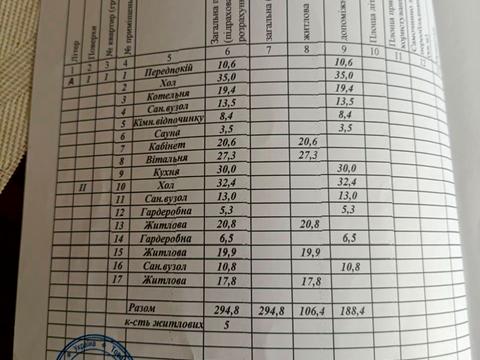 Літер
Поверхи
№ квартир
№ приміщень
Загальна
розрахунку
загальна
житлова
допоміжна
Площа
Площа
1 2 3 4 5 6 7 8 9 10 11 12
А I 1 1 Передпокій 10,6 10,6
2 Хол 35,0 35,0
3 Котельня 19,4 19,4
4 Сан.вузол 13,5 13,5
5 Кімн.відпочинку 8,4 8,4
6 Сауна 3,5 3,5
7 Кабінет 20,6 20,6
8 Вітальня 27,3 27,3
9 Кухня 30,0 30,0
II 10 Хол 32,4 32,4
11 Сан.вузол 13,0 13,0
12 Гардеробна 5,3 5,3
13 Житлова 20,8 20,8
14 Гардеробна 6,5 6,5
15 Житлова 19,9 19,9
16 Сан.вузол 10,8 10,8
17 Житлова 17,8 17,8
Разом 294,8 294,8 106,4 188,4
к-сть житлових 5
Україна